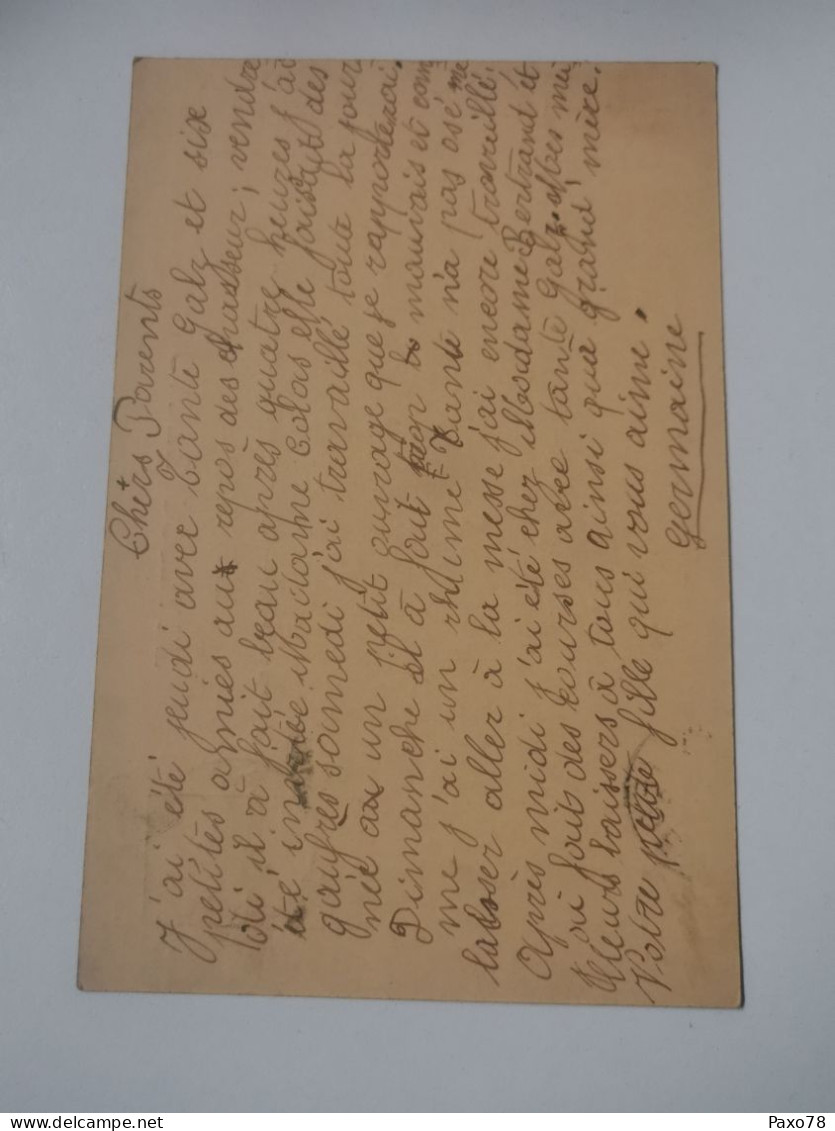 Chèrs Parents
J'ai été jeudi avec Tante Galz et sise
petites amies au repos des chasseur; vendre
di il à fait beau après quatre heures j'ai
été invitée Madame Colas elle faisait des
gaufres samedi j'ai travaillé toute la jour
née au un petit ouvrage que je rapporterai.
Dimanche il à fait mauvais et com
me j'ai un rhume Tante n'a pas osé me
laisser aller à la messe j'ai encore travaillé.
Après midi j'ai été chez Mardame Bertrand et
ai fait des courses avec tante Galz. Mes mei
lleurs baisers à tous ainsi qua grand' mère.
Votre petite fille qui vous aime.
Germaine
delcampe.net
Paxo78